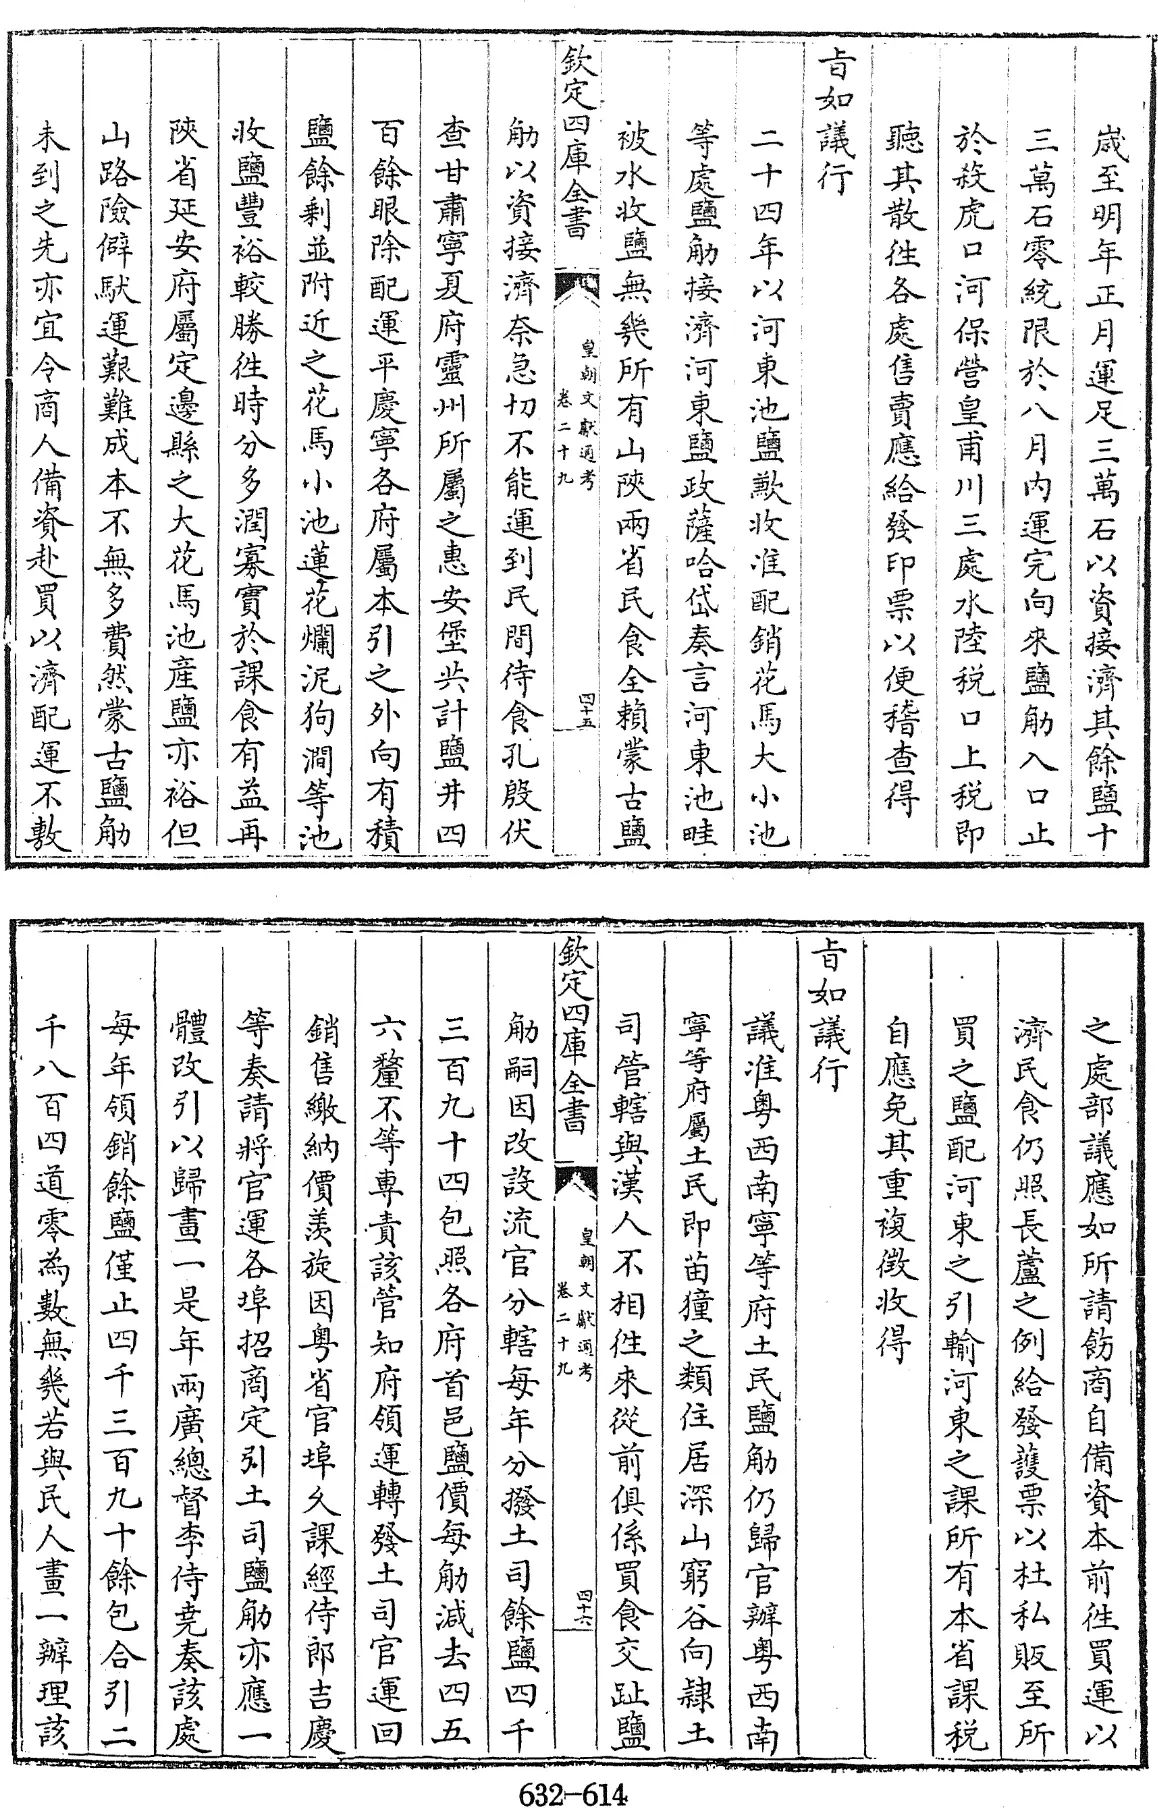 歲至明年正月運足三萬石以資接濟其餘鹽十
三萬石零統限於八月內運完向來鹽觔入口止
於殺虎口河保營皇甫川三處水陸税口上税即
聽其散徃各處售賣應給發印票以便稽查得
旨如議行
二十四年以河東池鹽歉收准配銷花馬大小池
等處鹽觔接濟河東鹽政薩哈岱奏言河東池畦
被水收鹽無幾所有山陝兩省民食全賴蒙古鹽
欽定四庫全書
皇朝文獻通考
卷二十九
四十五
觔以資接濟奈急切不能運到民間待食孔殷伏
查甘肅寧夏府靈州所屬之惠安堡共計鹽井四
百餘眼除配運平慶寧各府屬本引之外向有積
鹽餘剩並附近之花馬小池蓮花爛泥狗澗等池
收鹽豐裕較勝徃時分多潤寡實於課食有益再
陝省延安府屬定邊縣之大花馬池產鹽亦裕但
山路險僻馱運艱難成本不無多費然蒙古鹽觔
未到之先亦宜令商人備資赴買以濟配運不敷
之處部議應如所請飭商自備資本前徃買運以
濟民食仍照長蘆之例給發護票以杜私販至所
買之鹽配河東之引輸河東之課所有本省課税
自應免其重複徵收得
旨如議行
議准粵西南寧等府土民鹽觔仍歸官辦粵西南
寧等府屬土民即苗獞之類住居深山窮谷向隸土
司管轄與漢人不相徃來從前俱係買食交趾鹽
欽定四庫全書
皇朝文獻通考
卷二十九
四十六
觔嗣因改設流官分轄每年分撥土司餘鹽四千
三百九十四包照各府首邑鹽價每觔減去四五
六釐不等專責該管知府領運轉發土司官運回
銷售繳納價羨旋因粵省官埠久課經侍郎吉慶
等奏請將官運各埠招商定引土司鹽觔亦應一
體改引以歸畫一是年兩廣總督李侍堯奏該處
每年領銷餘鹽僅止四千三百九十餘包合引二
千八百四道零為數無幾若與民人畫一辦理該
632-614